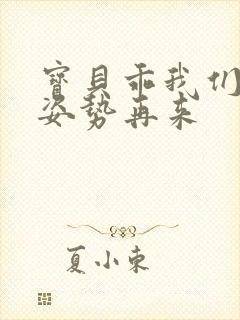 寶貝乖我们
姿势再来
夏小束